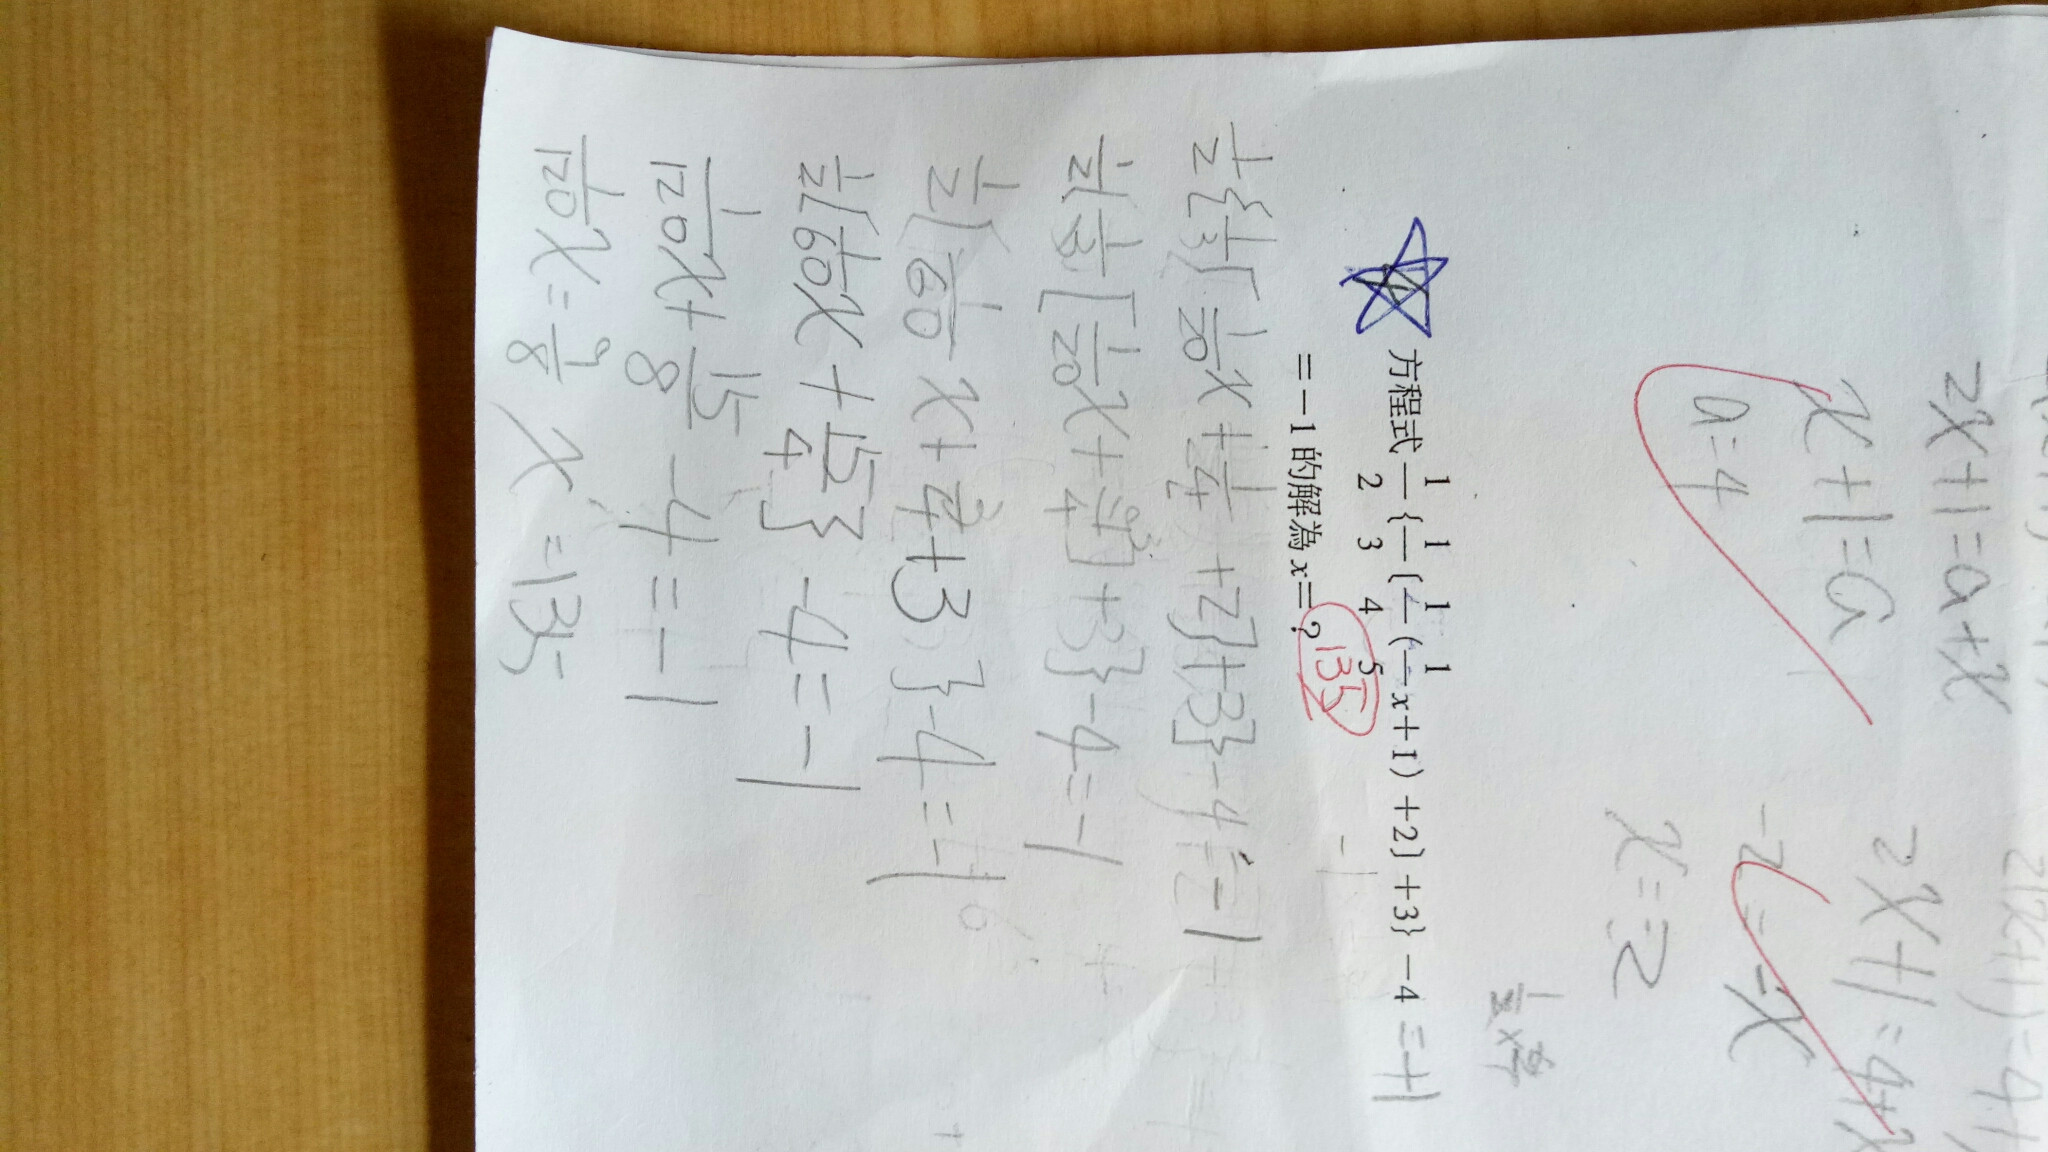 2x+1=a+x
x+1=a
a=4
2(x+1)=4+
2x+1=4+x
-2=-x
x=2
方程式 1/2{1/3[1/4(1/5x+1)+2]+3}-4 =-1
=-1的解為x=? 135
1/2{1/3[1/20x+1/4+2]+3}-4=-1
1/2{1/3[1/20x+9/4]+3}-4=-1
1/2{1/60x+3/4+3}-4=-1
1/2{1/60x+15/4}-4=-1
1/120x+15/8-4=-1
1/120x=9/8 x=135